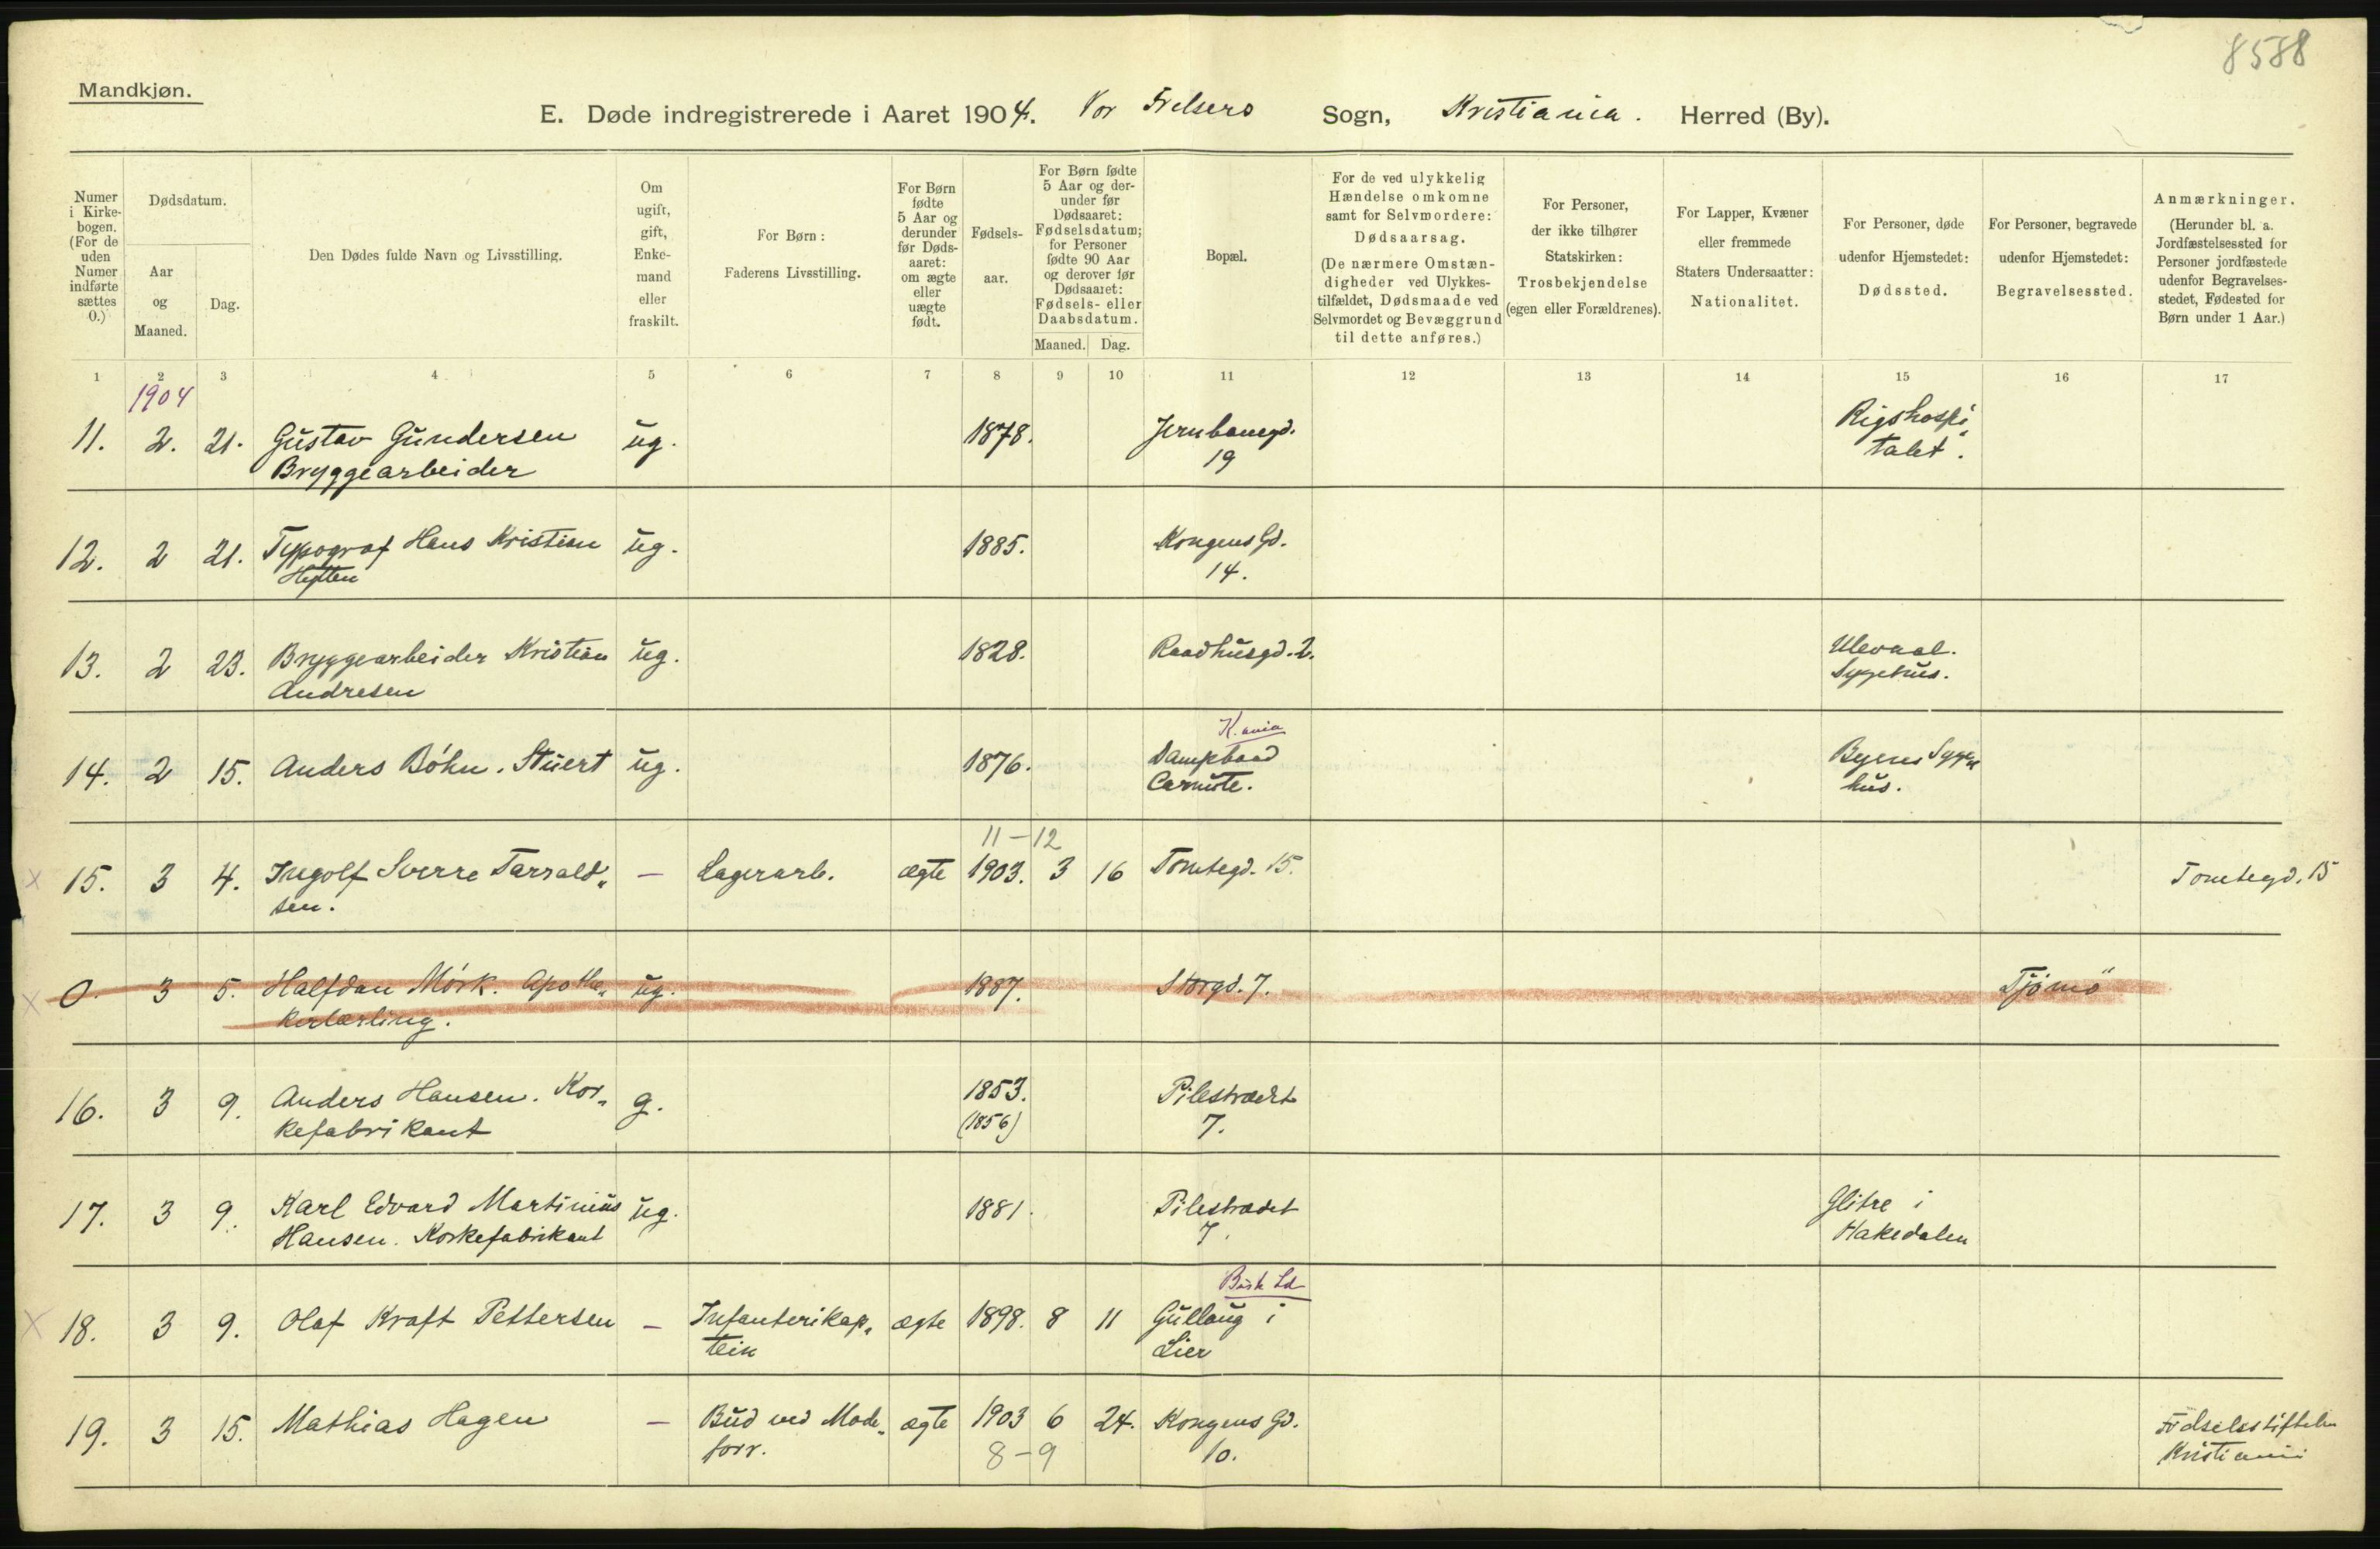 8588
Mandkjøn.
E. Døde indregistrerede i Aaret 1904. Vor Frelsers Sogn, Kristiania. Herred (By).
Numer i Kirkebogen. (For de uden Numer indførte sættes 0.)
Dødsdatum.
Aar og Maaned.
Dag.
Den Dødes fulde Navn og Livsstilling.
Om ugift, gift, Enkemand eller fraskilt.
For Børn: Faderens Livsstilling.
For Børn fødte 5 Aar og derunder før Dødsaaret: om ægte eller uægte født.
Fødselsaar.
For Børn fødte 5 Aar og derunder før Dødsaaret: Fødselsdatum; for Personer fødte 90 Aar og derover før Dødsaaret: Fødsels- eller Daabsdatum.
Maaned. Dag.
Bopæl.
For de ved ulykkelig Hændelse omkomne samt for Selvmordere: Dødsaarsag. (De nærmere Omstændigheder ved Ulykkestilfældet, Dødsmaade ved Selvmordet og Bevæggrund til dette anføres.)
For Personer, der ikke tilhører Statskirken: Trosbekjendelse (egen eller Forældrenes).
For Lapper, Kvæner eller fremmede Staters Undersaatter: Nationalitet.
For Personer, døde udenfor Hjemstedet: Dødssted.
For Personer, begravede udenfor Hjemstedet: Begravelsessted.
Anmærkninger. (Herunder bl. a. Jordfæstelsessted for Personer jordfæstede udenfor Begravelsesstedet, Fødested for Børn under 1 Aar.)
1 2 3 4 5 6 7 8 9 10 11 12 13 14 15 16 17
1904
11. 2. 21. Gustav Gundersen ug. 1878. Jernbanegd. Rigshospi
Bryggearbeider 19 talet.
12. 2 21. Typograf Hans Kristian ug. 1885. Kongens Gd.
14.
13. 2 23. Bryggearbeider Kristian ug. 1828. Raadhusgd. 2. Ulevaal
Andresen Sygehus.
K.ania
14. 2 15. Anders Böhn. Stuert ug. 1876. Dampbaad Byens Syge
Carmute. hus.
11-12
15. 3 4. Ingolf Sverre Tarrald„ — Lagerarb. ægte 1903. 3 16 Tomtegd. 15. Tomtegd. 15
sen.
0. 3 5. Halfdan Mörk. Apothe„ ug. 1887. Storgd. 7. Tjömö
kerlærling.
16. 3 9. Anders Hansen. Kor„ g. 1853. Pilestrædet
kefabrikant (1856) 7.
17. 3 9. Karl Edvard Martinius ug. 1881. Pilestrædet Glitre i
Hansen. Korkefabrikant 7. Hakedalen
Busk
18. 3 9. Olaf Kraft Pettersen — Infanterikap„ ægte 1898. 8 11 Gullaug i
tein Lier
19. 3 15. Mathias Hagen — Bud ved Mode„ ægte 1903 6 24. Kongens Gd. Födselsstiftelsen
forr. 8-9 10. Kristiania